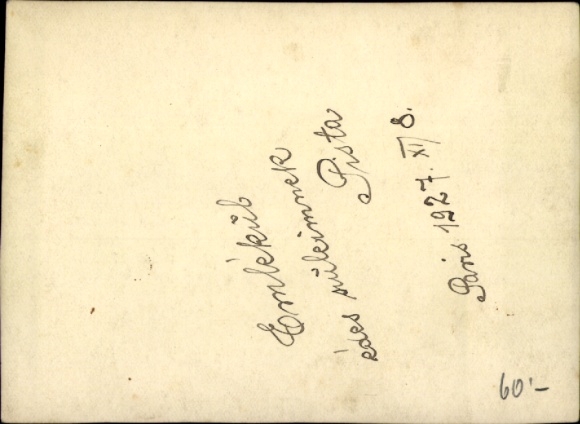 Emlékül
édes szüleimnek
Pista
Páris 1927. XI/8.
60'-